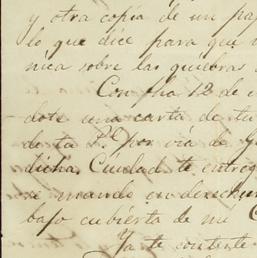 y otra copia de un pap
lo que dice para que
nica sobre las quiebras
Con fha 12 de
dote una carta de tu
de ta Pl por via de
dicha Ciudad te entreg
se mande en derechur
bajo cubierta de me C
Ya te contesté